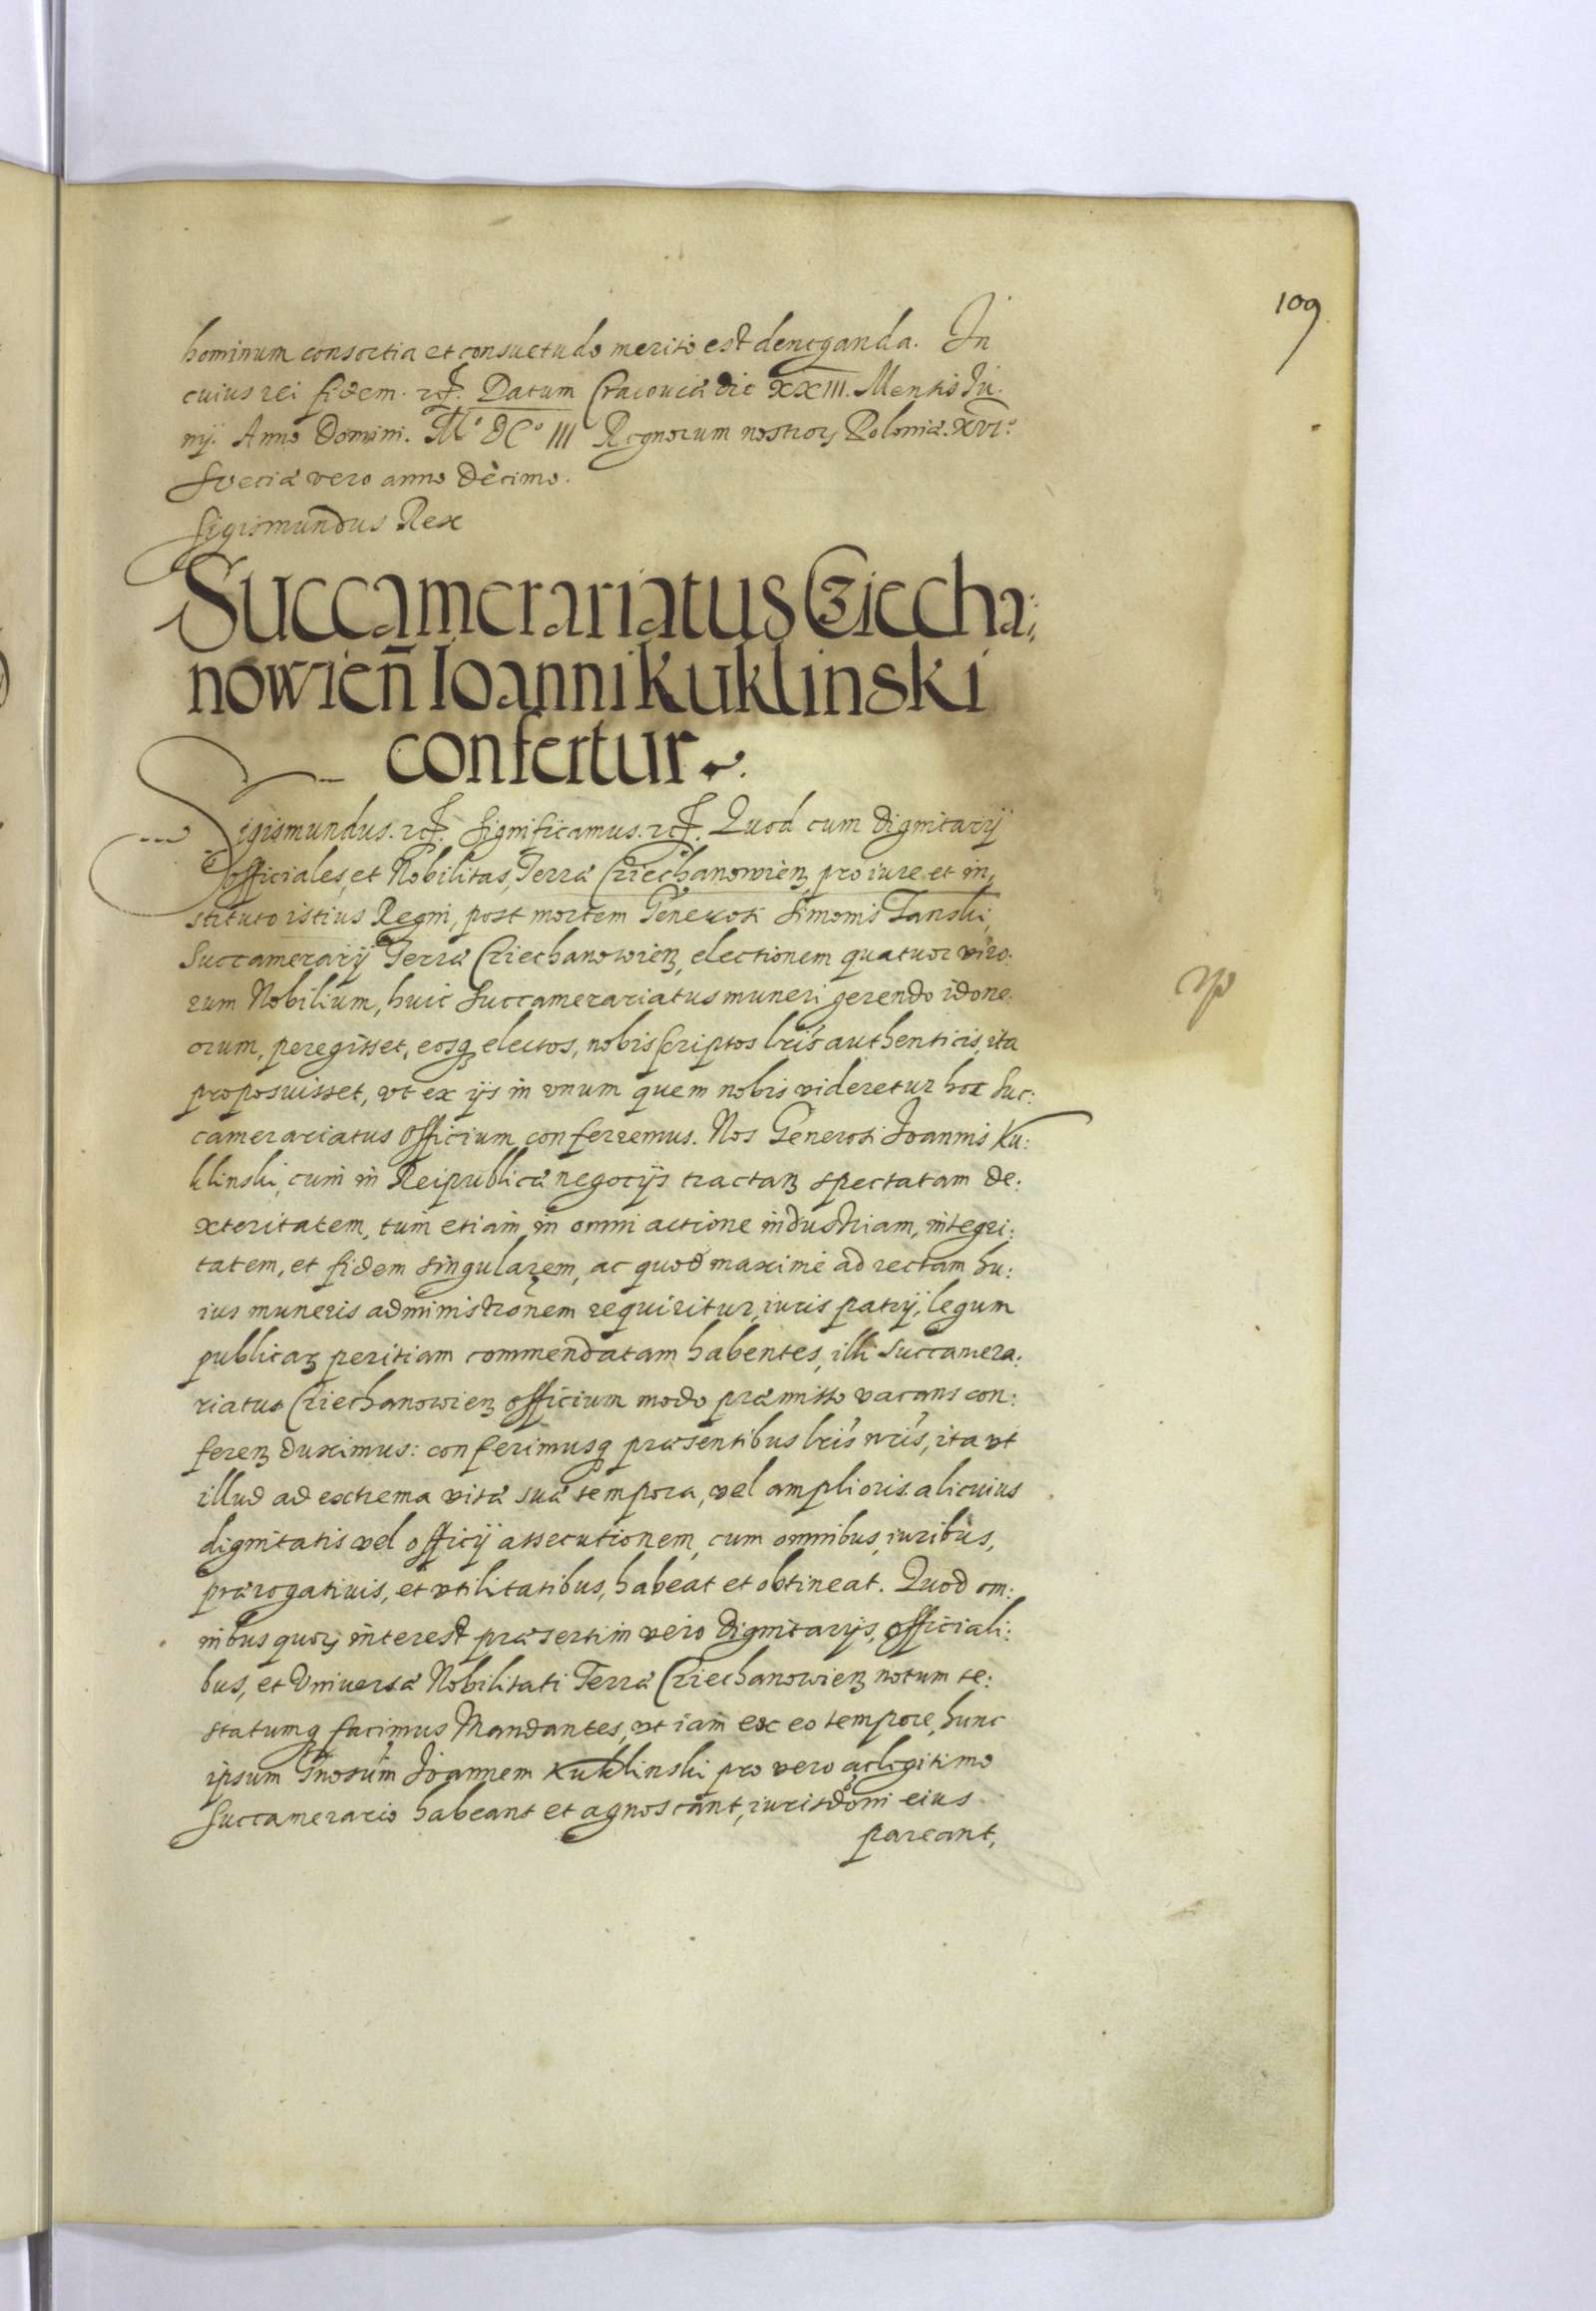 109
hominum consortia et consuetudo merito est deneganda. In
cuius rei fidem. etc. Datum Cracouiæ die XXIII. Mensis Iu:
nij. Anno Domini. M.º DCº III Regnorum nostroꝝ Poloniæ. XVI.º
Sveciæ vero anno decimo.
Sigismundus Rex
Succamerariatus Cziecha:
nowieñ Ioanni Kuklinski
confertur.
Sigismundus. etc. Significamus. etc. Quod cum dignitarij
officiales, et Nobilitas, Terræ Cziechanowieñ, pro iure et in,
stituto istius Regni, post mortem Generosi Simonis Tanski,
Succamerarij Terræ Cziechanowieñ, electionem quatuor viro:
rum Nobilium, huic Succamerariatus muneri gerendo idone:
orum, peregisset, eosq₃ electos, nobis scriptos lr̃is authenticis, ita
proposuisset, vt ex ijs in vnum quem nobis videretur hoc Suc:
camerariatus officium conferremus. Nos Generosi Joannis Ku:
klinski, cum in Reipublicæ negocijs tractañ spectatam de:
xteritatem, tum etiam in omni actione industriam, integri:
tatem, et fidem singularem, ac quod maxime ad rectam hu:
ius muneris administrõnem requiritur, iuris patrij, legum
publicaꝝ peritiam commendatam habentes, illi Succamera:
riatus Cziechanowieñ officium modo præmisso vacans con:
fereñ duximus: conferimusq₃ præsentibus lr̃is nr̃is, ita vt
illud ad extrema vitæ suæ tempora, vel amplioris alicuius
dignitatis vel officij assecutionem, cum omnibus, iuribus,
prærogatiuis, et vtilitatibus, habeat et obtineat. Quod om:
nibus quoꝝ interest præsertim vero dignitarijs, officiali:
bus, et Vniuersæ Nobilitati Terræ Cziechanowieñ notum te:
statumq₃ facimus Mandantes, vt iam ex eo tempore, hunc
ipsum Gñosum Joannem Kuklinski pro vero ac legitimo
Succamerario habeant et agnoscant, iurisdõni eius
pareant,